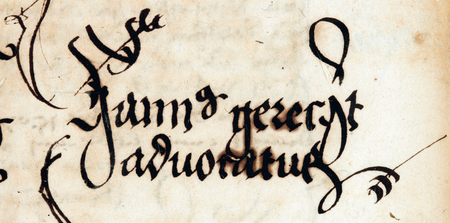 Hanns gerecht
aduocatus